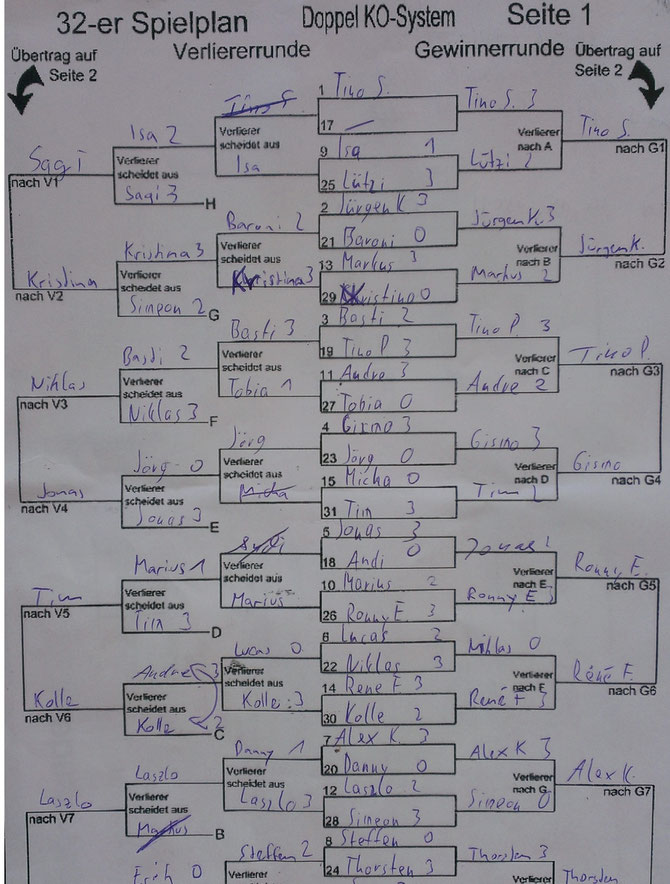 32-er Spielplan Doppel KO-System Seite 1
Verliererrunde Gewinnerrunde
Übertrag auf Seite 2
Übertrag auf Seite 2
1 Tino S.
17
Tino S. 3
Verlierer nach A
Tino S.
nach G1
9 Isa 1
25 Lützi 3
Lützi 2
2 Jürgen K 3
21 Baroni 0
Jürgen K. 3
Verlierer nach B
Jürgen K.
nach G2
13 Markus 3
29 Kristina 0
Markus 2
3 Basti 2
19 Tino P 3
Tino P. 3
Verlierer nach C
Tino P.
nach G3
11 Andre 3
27 Tobia 0
Andre 2
4 Gismo 3
23 Jörg 0
Gismo 3
Verlierer nach D
Gismo
nach G4
15 Micha 0
31 Tim 3
Tim 2
5 Jonas 3
18 Andi 0
Jonas 2
Verlierer nach E
Ronny E.
nach G5
10 Marius 2
26 Ronny E. 3
Ronny E 3
6 Lucas 2
22 Niklas 3
Niklas 0
Verlierer nach F
René F.
nach G6
14 Rene F 3
30 Kolle 2
René F 3
7 Alex K. 3
20 Danny 0
Alex K 3
Verlierer nach G
Alex K.
nach G7
12 Laszlo 2
28 Simeon 3
Simeon 0
8 Steffen 0
24 Thorsten 3
Thorsten 3
Verlierer
Thorsten
Tino S.
Verlierer scheidet aus
Isa
Isa 2
Verlierer scheidet aus
Sagi 3
H
Sagi
nach V1
Baroni 2
Verlierer scheidet aus
Kristina 3
Kristina 3
Verlierer scheidet aus
Simeon 2
G
Kristina
nach V2
Basti 3
Verlierer scheidet aus
Tobia 1
Basti 2
Verlierer scheidet aus
Niklas 3
F
Niklas
nach V3
Jörg
Verlierer scheidet aus
Micha
Jörg 0
Verlierer scheidet aus
Jonas 3
E
Jonas
nach V4
Andi
Verlierer scheidet aus
Marius
Marius 1
Verlierer scheidet aus
Tim 3
D
Tim
nach V5
Lucas 0
Verlierer scheidet aus
Kolle 3
Andre 3
Verlierer scheidet aus
Kolle 2
C
Kolle
nach V6
Danny 1
Verlierer scheidet aus
Laszlo 3
Laszlo
Verlierer scheidet aus
Markus
B
Laszlo
nach V7
Steffen 2
Verlierer
0